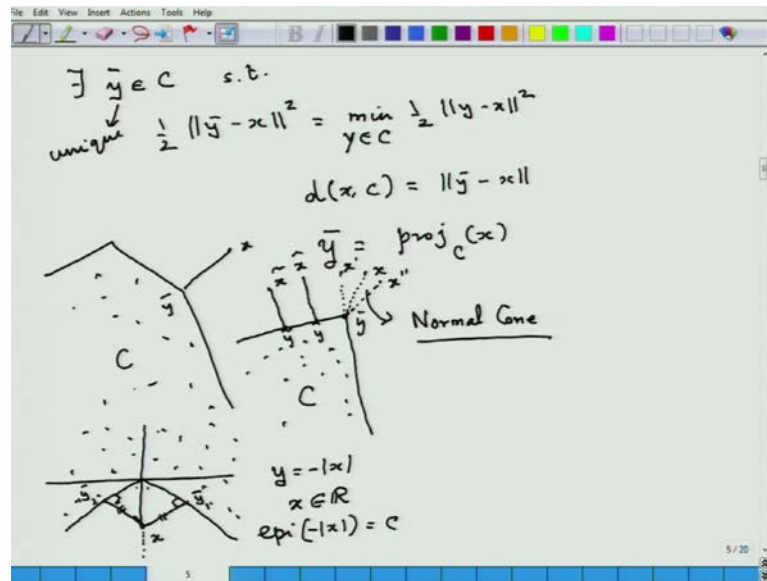 File Edit View Insert Actions Tools Help
∃ ȳ ∈ C s.t.
unique
½ ||ȳ - x||² = min ½ ||y - x||²
y ∈ C
d(x, C) = ||ȳ - x||
ȳ = proj_C(x)
x
ȳ
C
x̃ x̂ x' x x''
y y ȳ
Normal Cone
C
y = -|x|
x ∈ ℝ
epi(-|x|) = C
ȳ₂ ȳ₁
x
5 / 20
5